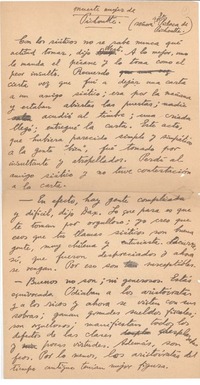 muerte mujer de
Pichonetti.
(señora Pelusa de
Con los siúticos no se sabe nunca qué
actitud tomar, dijo Alfi. A lo mejor, uno
le manda el pésame y lo toma como el
peor insulto. Recuerdo
carta voz que fuí a dejar una carta
a un amigo siútico; era por la mañana
y estaban abiertas las puertas; nadie
acudió al timbre; una criada
llegó; entregué la carta. Este acto,
que hubiera parecido simple y sencillo
a la gente bien, fué tomado por
insultante y atropellador. Perdí al
amigo siútico y no tuve contestación
a la carta.
— En efecto, hay gente complicada
y difícil, dijo Dax. Lo que pasa es que
te toman por orgulloso; yo creo que
esos que tu llamas siúticos son buena
gente, muy chilena y entusiasta,
sí, que fueron despreciados y ahora
se vengan. Por eso son susceptibles.
— Buenos no son, ni generosos. Estás
equivocado. Odiaban a los aristócratas
y a los ricos y ahora se visten con sus
sobras; ganan grandes sueldos fiscales,
son orgullosos y manifiestan todos los
defectos de las clases
y pocas virtudes. Además, son
feos. Por lo menos, los aristócratas del
tiempo antiguo tenían mejor figura.